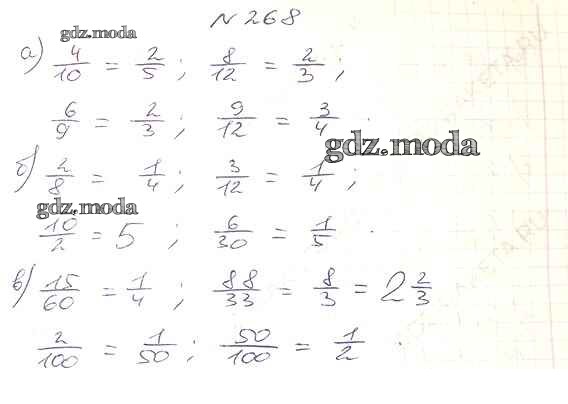 № 268
gdz.moda
а) 4/10 = 2/5 ; 8/12 = 2/3 ;
6/9 = 2/3 ; 9/12 = 3/4 .
gdz.moda
б) 2/8 = 1/4 ; 3/12 = 1/4 ;
gdz.moda
10/2 = 5 ; 6/30 = 1/5 .
в) 15/60 = 1/4 ; 88/33 = 8/3 = 2 2/3
2/100 = 1/50 ; 50/100 = 1/2 .